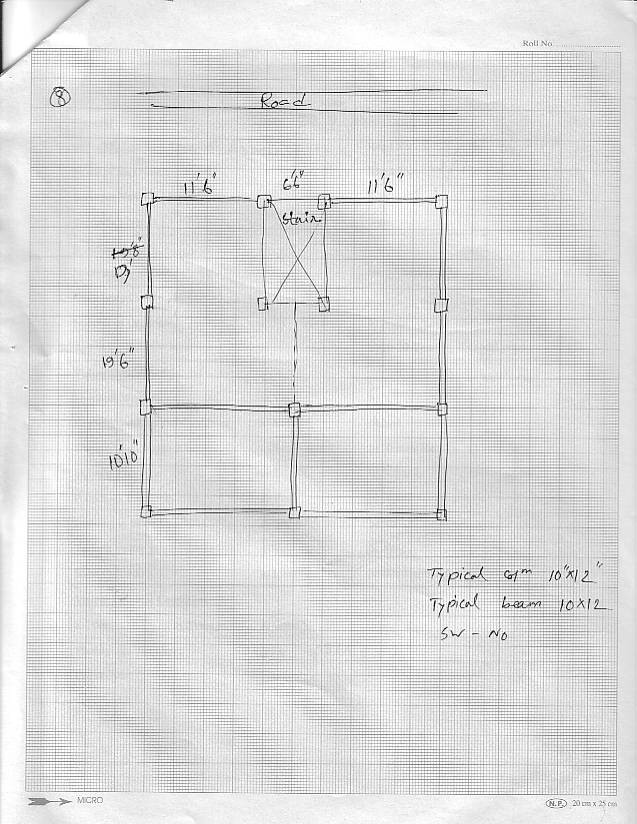 Roll No.
8
Road
11'6" 6'6" 11'6"
Stair
13'
19'6"
10'10"
Typical colm 10"x12"
Typical beam 10x12
SW - No
MICRO
N.P. 20 cm x 25 cm